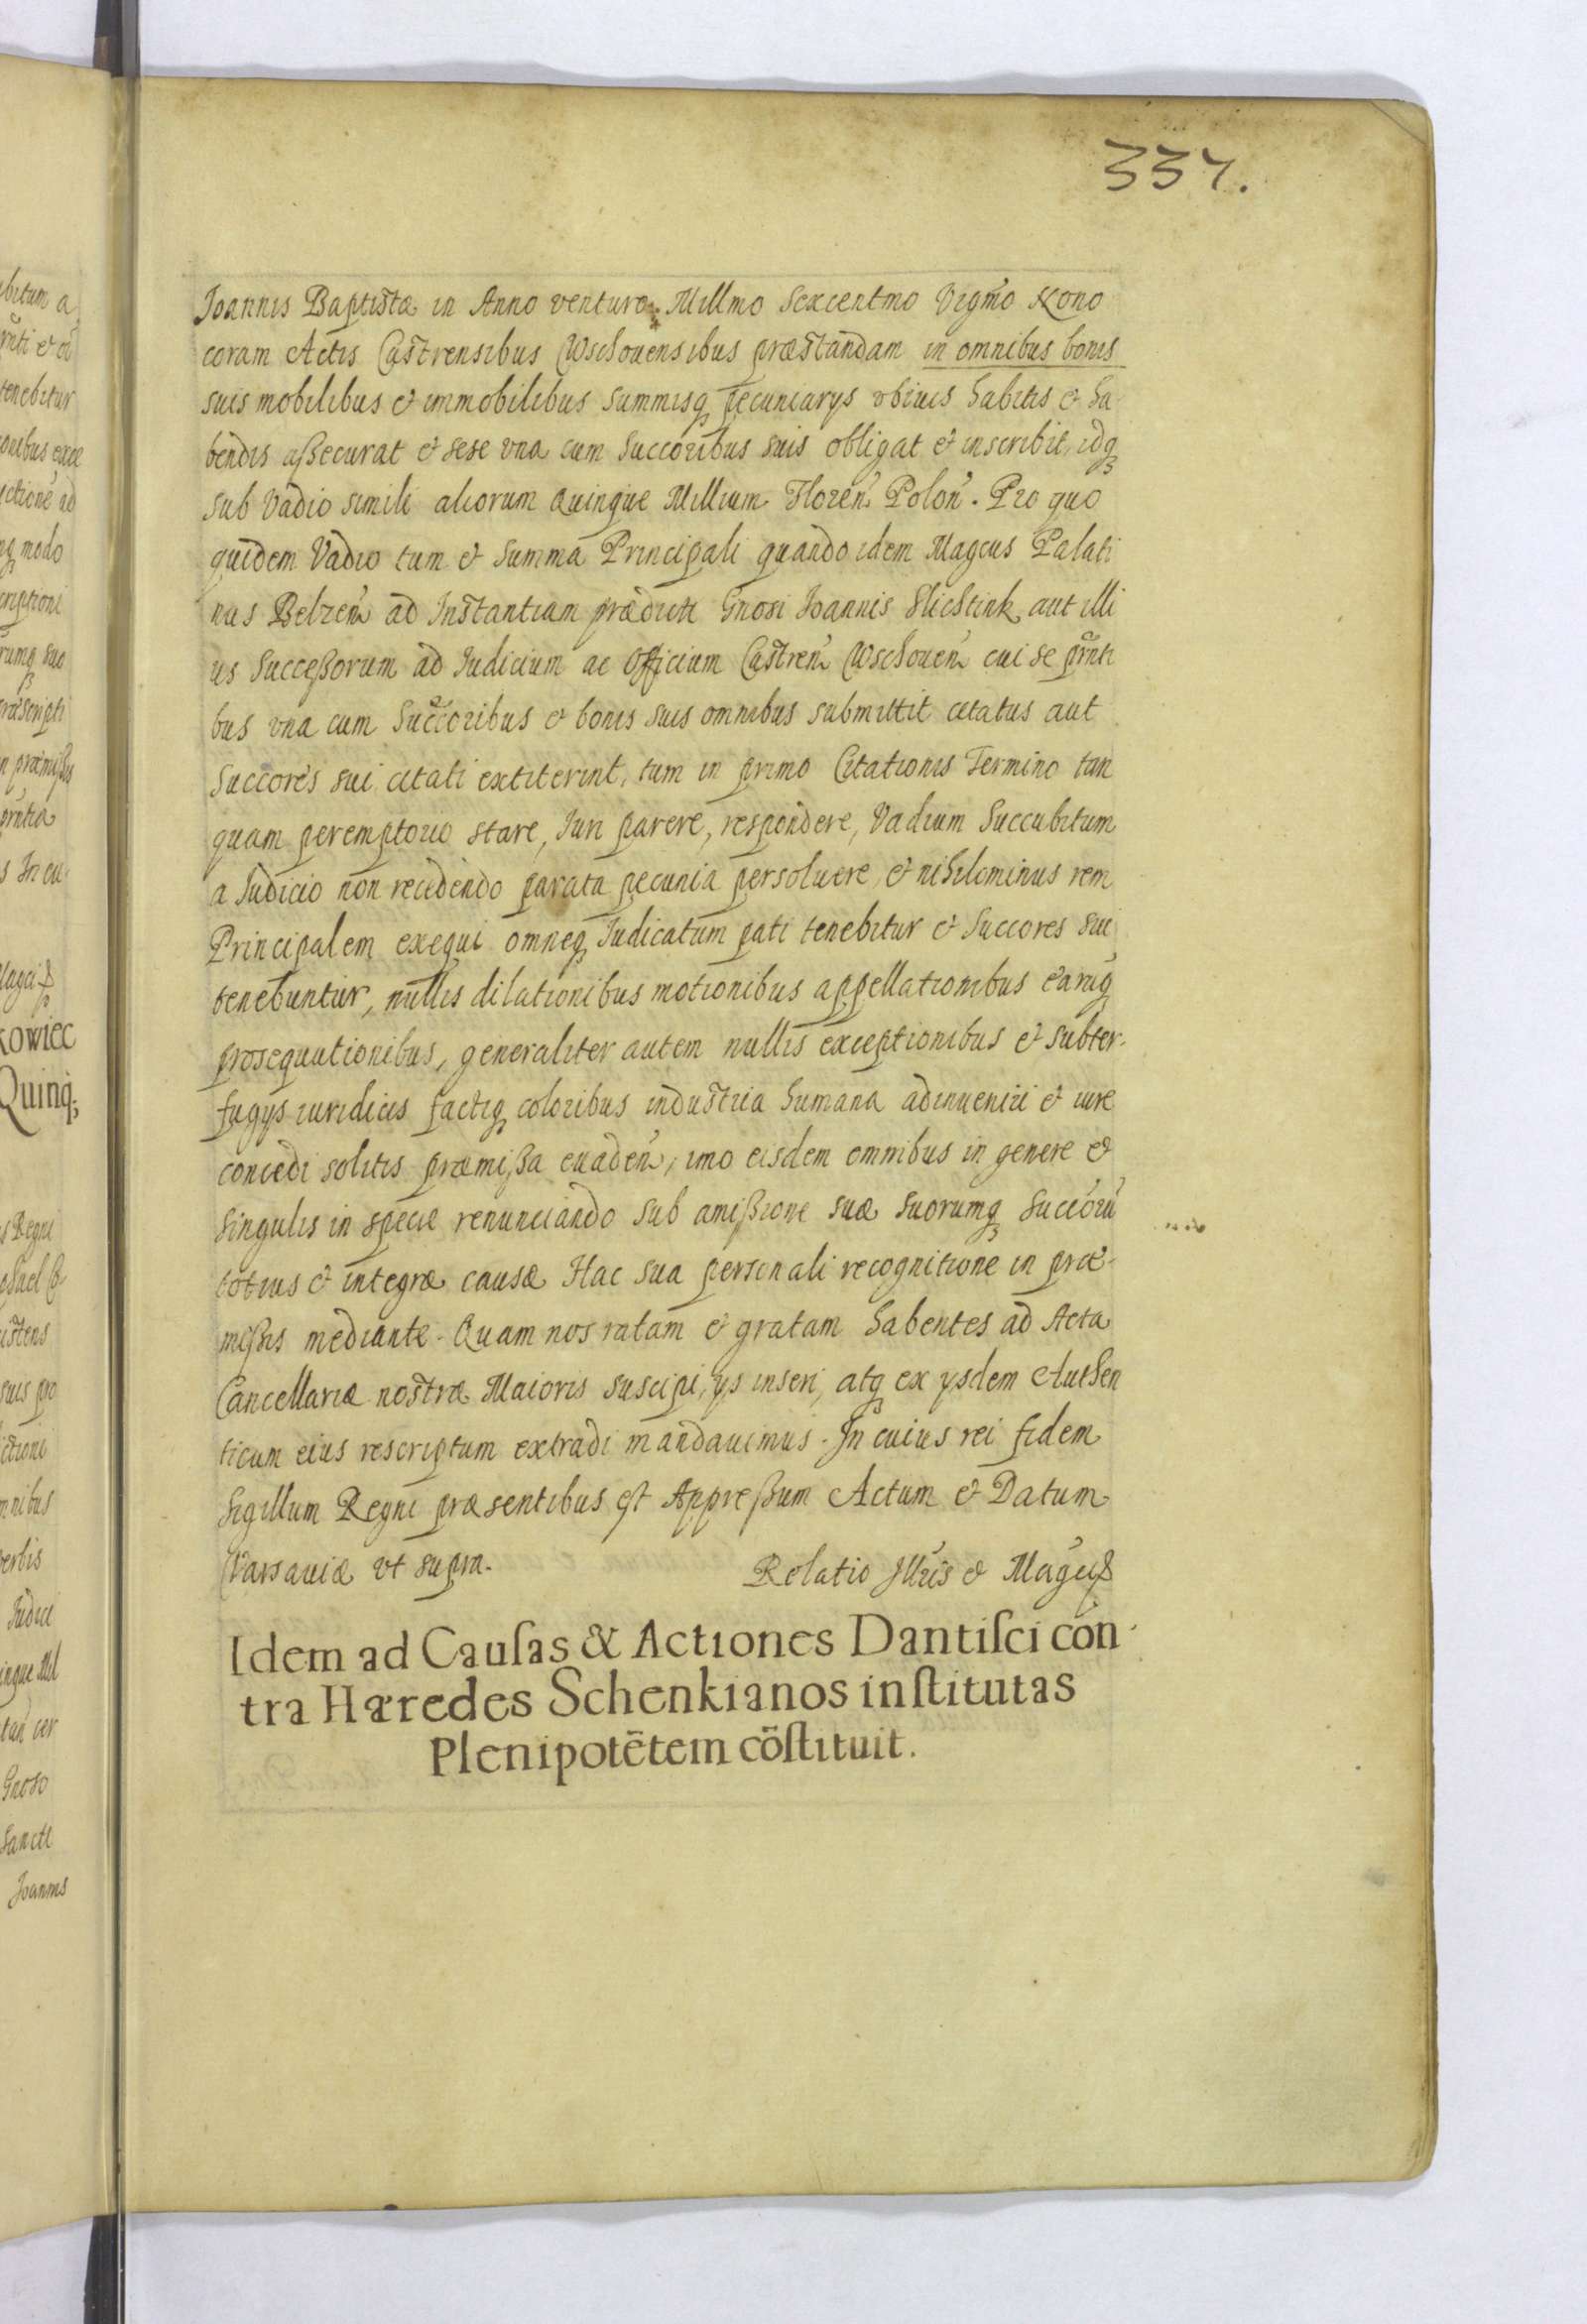 337.
Joannis Baptistæ in Anno venturo Millmo Sexcentmo Vigmo Nono
coram Actis Castrensibus Wschovensibus præstandam in omnibus bonis
suis mobilibus et immobilibus summisq pecuniarys vbiuis habitis et ha
bendis assecurat et sese vna cum Succoribus suis obligat et inscribit, idq
sub Vadio simili aliorum Quinque Millium Floren Polon. Pro quo
quidem Vadio tum et Summa Principali quando idem Magcus Palati
nus Belzen ad Instantiam prædicti Gnosi Joannis Slichtink aut illi
us Successorum ad Judicium ac Officium Castren Wschoven cui se prnti
bus vna cum Succoribus et bonis suis omnibus submittit citatus aut
Succores sui citati extiterint, tum in primo Citationis Termino tan
quam peremptorio stare, Juri parere, respondere, Vadium Succubitum
a Judicio non recedendo parata pecunia persoluere, et nihilominus rem
Principalem exequi omneq Judicatum pati tenebitur et Succores sui
tenebuntur, nullis dilationibus motionibus appellationibus earuq
prosequutionibus, generaliter autem nullis exceptionibus et subter-
fugys iuridicis factiq coloribus industria humana adinueniri et iure
concedi solitis præmissa euaden, imo eisdem omnibus in genere et
singulis in specie renunciando sub amissione suæ suorumq Succorũ
totius et integræ causæ Hac sua personali recognitione in præ-
missis mediante. Quam nos ratam et gratam habentes ad Acta
Cancellariæ nostræ Maioris suscipi, ys inseri, atq ex ysdem Authen
ticum eius rescriptum extradi mandauimus. In cuius rei fidem
Sigillum Regni præsentibus est Appressum Actum et Datum
Varsauiæ vt supra. Relatio Illris et Magci &
Idem ad Cauſas & Actiones Dantiſci con
tra Hæredes Schenkianos inſtitutas
Plenipotētem cōſtituit.